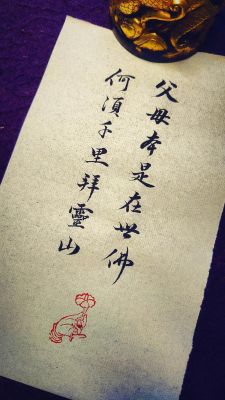 父母本是在世佛
何須千里拜靈山